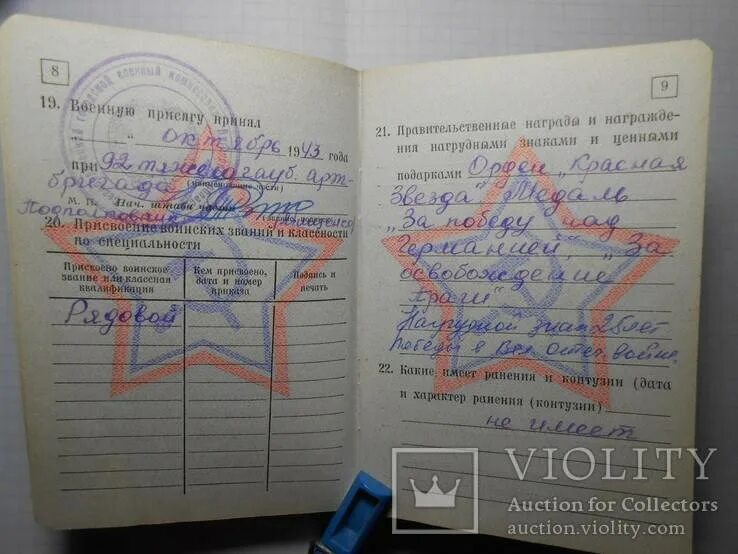 8
19. Военную присягу принял
„ “ октябрь 1943 года
при 92 тяжелогауб. арт-
бригада
(наименование части)
М. П. Нач. штаба части
Подполковник
20. Присвоение воинских званий и классности
по специальности
Присвоено воинское звание или классная квалификация
Кем присвоено, дата и номер приказа
Подпись и печать
Рядовой
9
21. Правительственные награды и награжде-
ния нагрудными знаками и ценными
подарками Орден „Красная
Звезда" Медаль
„За победу над
Германией", „За
освобождение
Праги"
Нагрудной знак 25 лет
Победы в Вел. Отеч. войне.
22. Какие имеет ранения и контузии (дата
и характер ранения (контузии)
не имеет
VIOLITY
Auction for Collectors
auction.violity.com